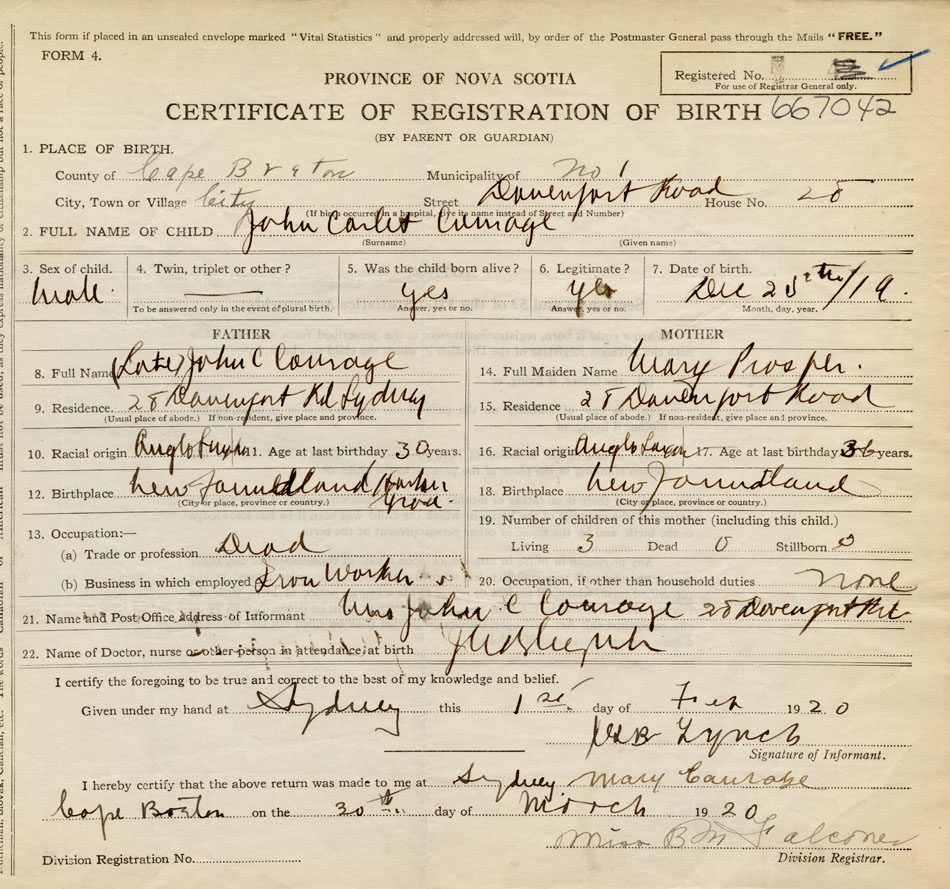 This form if placed in an unsealed envelope marked "Vital Statistics" and properly addressed will, by order of the Postmaster General pass through the Mails "FREE."
FORM 4.
Registered No.
For use of Registrar General only.
PROVINCE OF NOVA SCOTIA
CERTIFICATE OF REGISTRATION OF BIRTH 667042
(BY PARENT OR GUARDIAN)
1. PLACE OF BIRTH.
County of Cape Breton Municipality of No 1
City, Town or Village City Street Davenport Road House No. 28
(If birth occurred in a hospital, give its name instead of Street and Number)
2. FULL NAME OF CHILD John Courage
(Surname) (Given name)
3. Sex of child. 4. Twin, triplet or other? 5. Was the child born alive? 6. Legitimate? 7. Date of birth.
Male. yes yes Dec 25th/19.
To be answered only in the event of plural birth. Answer, yes or no. Answer, yes or no. Month, day, year.
FATHER MOTHER
8. Full Name (Late) John C Courage 14. Full Maiden Name Mary Prosper.
9. Residence. 28 Davenport Rd Sydney 15. Residence 28 Davenport Road
(Usual place of abode.) If non-resident, give place and province. (Usual place of abode.) If non-resident, give place and province.
10. Racial origin Anglo Saxon 11. Age at last birthday 30 years. 16. Racial origin Anglo Saxon 17. Age at last birthday 36 years.
12. Birthplace New Foundland Harbor Grace 18. Birthplace New Foundland
(City or place, province or country.) (City or place, province or country.)
13. Occupation:— 19. Number of children of this mother (including this child.)
(a) Trade or profession Dead Living 3 Dead 0 Stillborn 0
(b) Business in which employed Iron Worker 20. Occupation, if other than household duties none
21. Name and Post Office address of Informant Mrs John C Courage 28 Davenport Rd
22. Name of Doctor, nurse or other person in attendance at birth
I certify the foregoing to be true and correct to the best of my knowledge and belief.
Given under my hand at Sydney this 1st. day of Feb 1920
Lynch
Signature of Informant.
I hereby certify that the above return was made to me at Sydney Mary Courage
Cape Breton on the 30th day of March 1920
Miss B M Falconer
Division Registration No. Division Registrar.